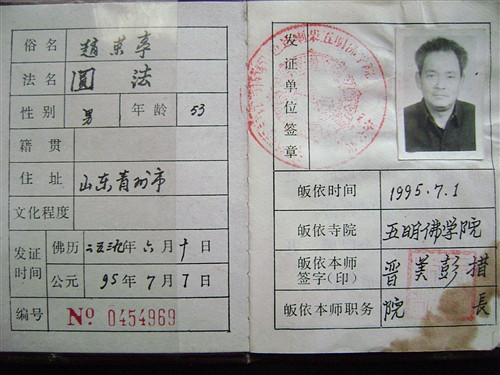 俗名 趙荣亭
法名 圆法
性别 男 年龄 53
籍贯
住址 山东青州市
文化程度
发证时间
佛历 二五三九年六月十日
公元 95年7月7日
编号 Nº 0454969
发证单位签章
皈依时间 1995.7.1
皈依寺院 五明佛学院
皈依本师签字(印) 晋美彭措
皈依本师职务 院長